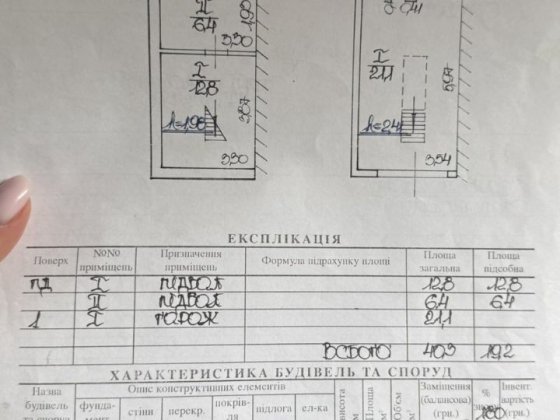 II
6,4
1,90
3,30
I
12,8
3,87
h=1,98
3,30
0,41
I
21,1
5,97
h=2,41
3,54
ЕКСПЛІКАЦІЯ
Поверх №№ приміщень Призначення приміщень Формула підрахунку площі Площа загальна Площа підсобна
ПД I ПІДВАЛ 12,8 12,8
II ПІДВАЛ 6,4 6,4
1 I ГАРАЖ 21,1
ВСЬОГО 40,3 19,2
ХАРАКТЕРИСТИКА БУДІВЕЛЬ ТА СПОРУД
Назва будівель Опис конструктивних елементів висота Площа м² Об'єм м³ Заміщення (балансова) (грн.) % Інвент. вартість (грн.)
фунда- стіни перекр. покрів- ля підлога ел-ка
180